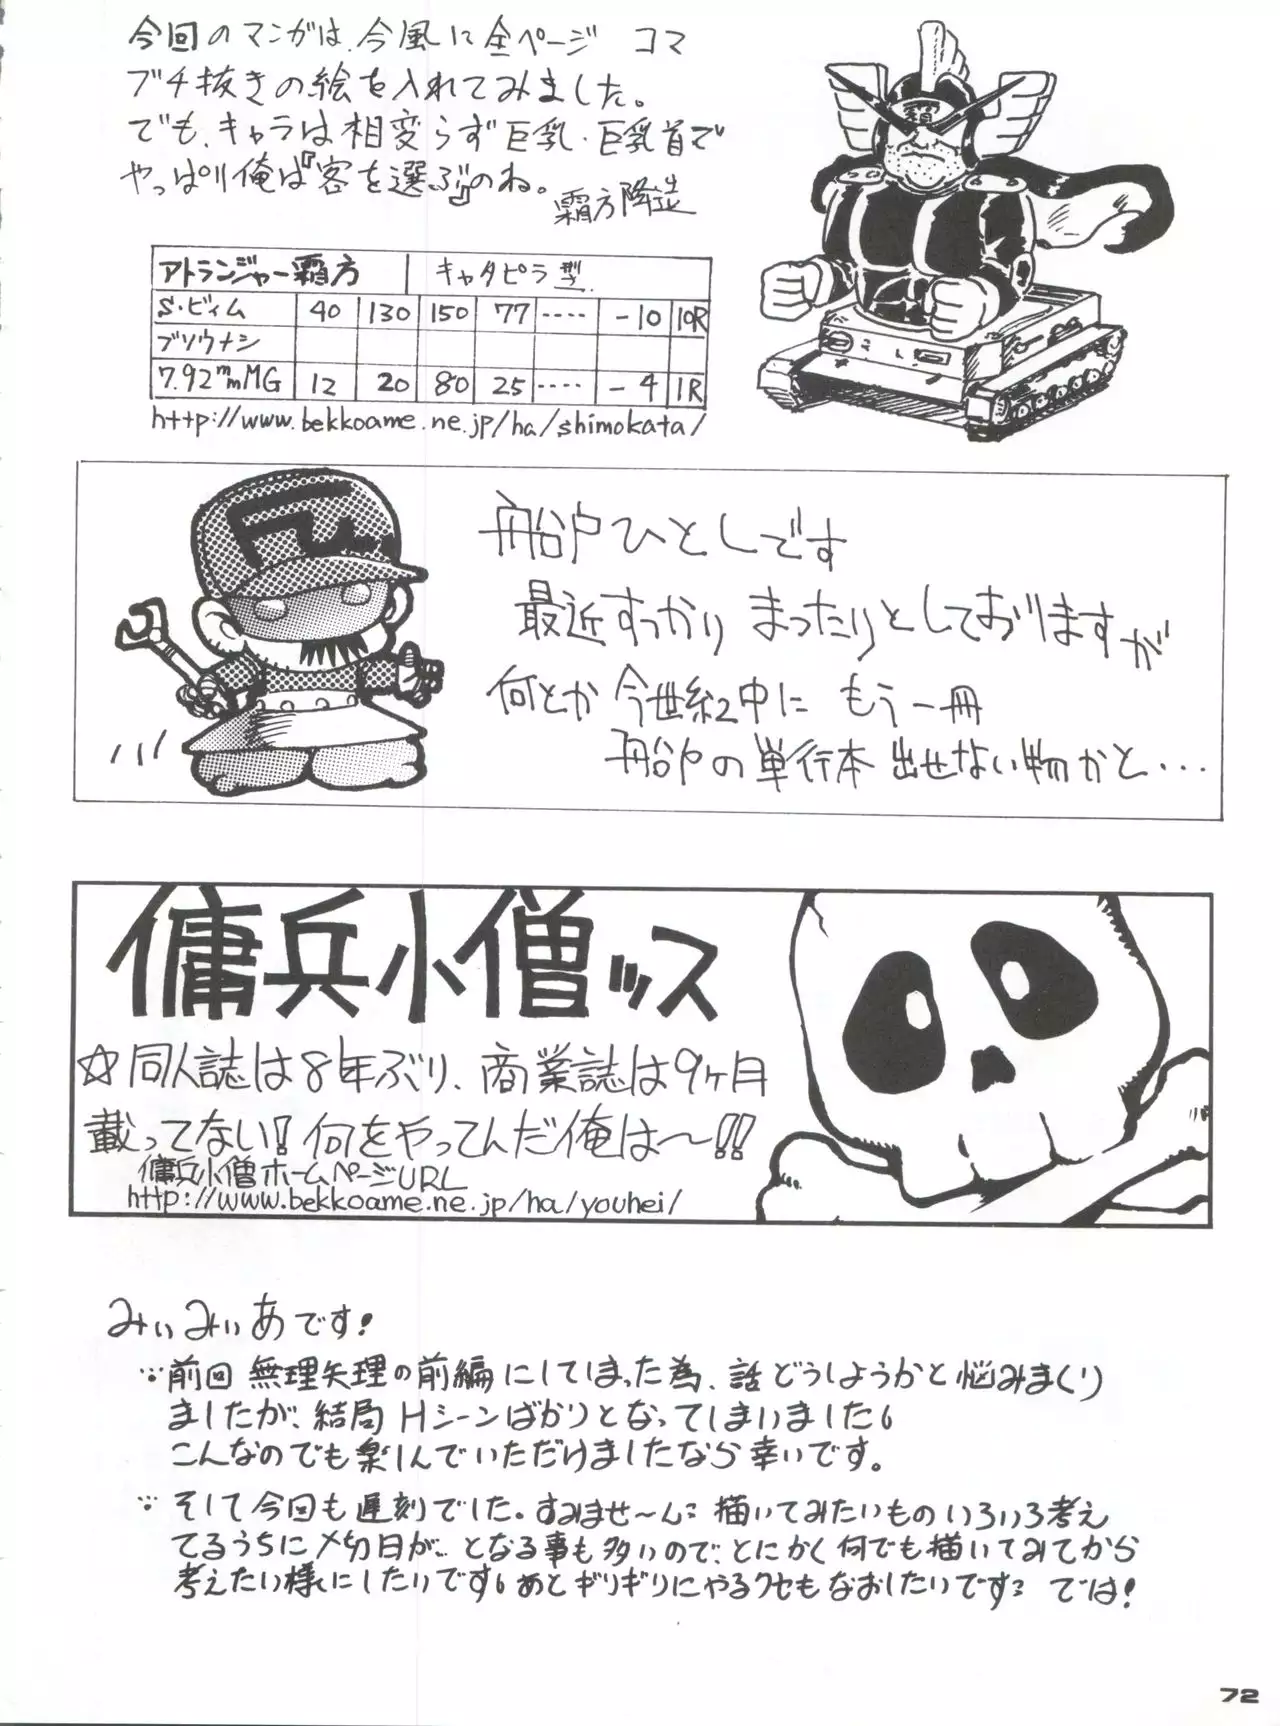 今回のマンガは、今風に全ページ コマ
ブチ抜きの絵を入れてみました。
でも、キャラは相変らず巨乳・巨乳首で
やっぱり俺は『客を選ぶ』のね。
霜方降造
霜
アトランジャー霜方 キャタピラ型
S・ビィム 40 130 150 77 ‥‥ -10 10R
ブソウナシ
7.92mmMG 12 20 80 25 ‥‥ -4 1R
http://www.bekkoame.ne.jp/ha/shimokata/
船戸ひとしです
最近すっかり まったりとしておりますが
何とか今世紀中に もう一冊
船戸の単行本 出せない物かと・・・
傭兵小僧ッス
☆同人誌は8年ぶり、商業誌は9ヶ月
載ってない!何をやってんだ俺は〜!!
傭兵小僧ホームページURL
http://www.bekkoame.ne.jp/ha/youhei/
みぃみぃあです!
∵前回 無理矢理の前編にしてしまった為、話どうしようかと悩みまくり
ましたが、結局 Hシーンばかりとなってしまいました。
こんなのでも楽しんでいただけましたなら幸いです。
∵そして今回も遅刻でした。すみませ〜ん 描いてみたいものいろいろ考え
てるうちに〆切日が…となる事も多いので、とにかく何でも描いてみてから
考えたい様にしたいです。あとギリギリにやるクセもなおしたいです では!
72